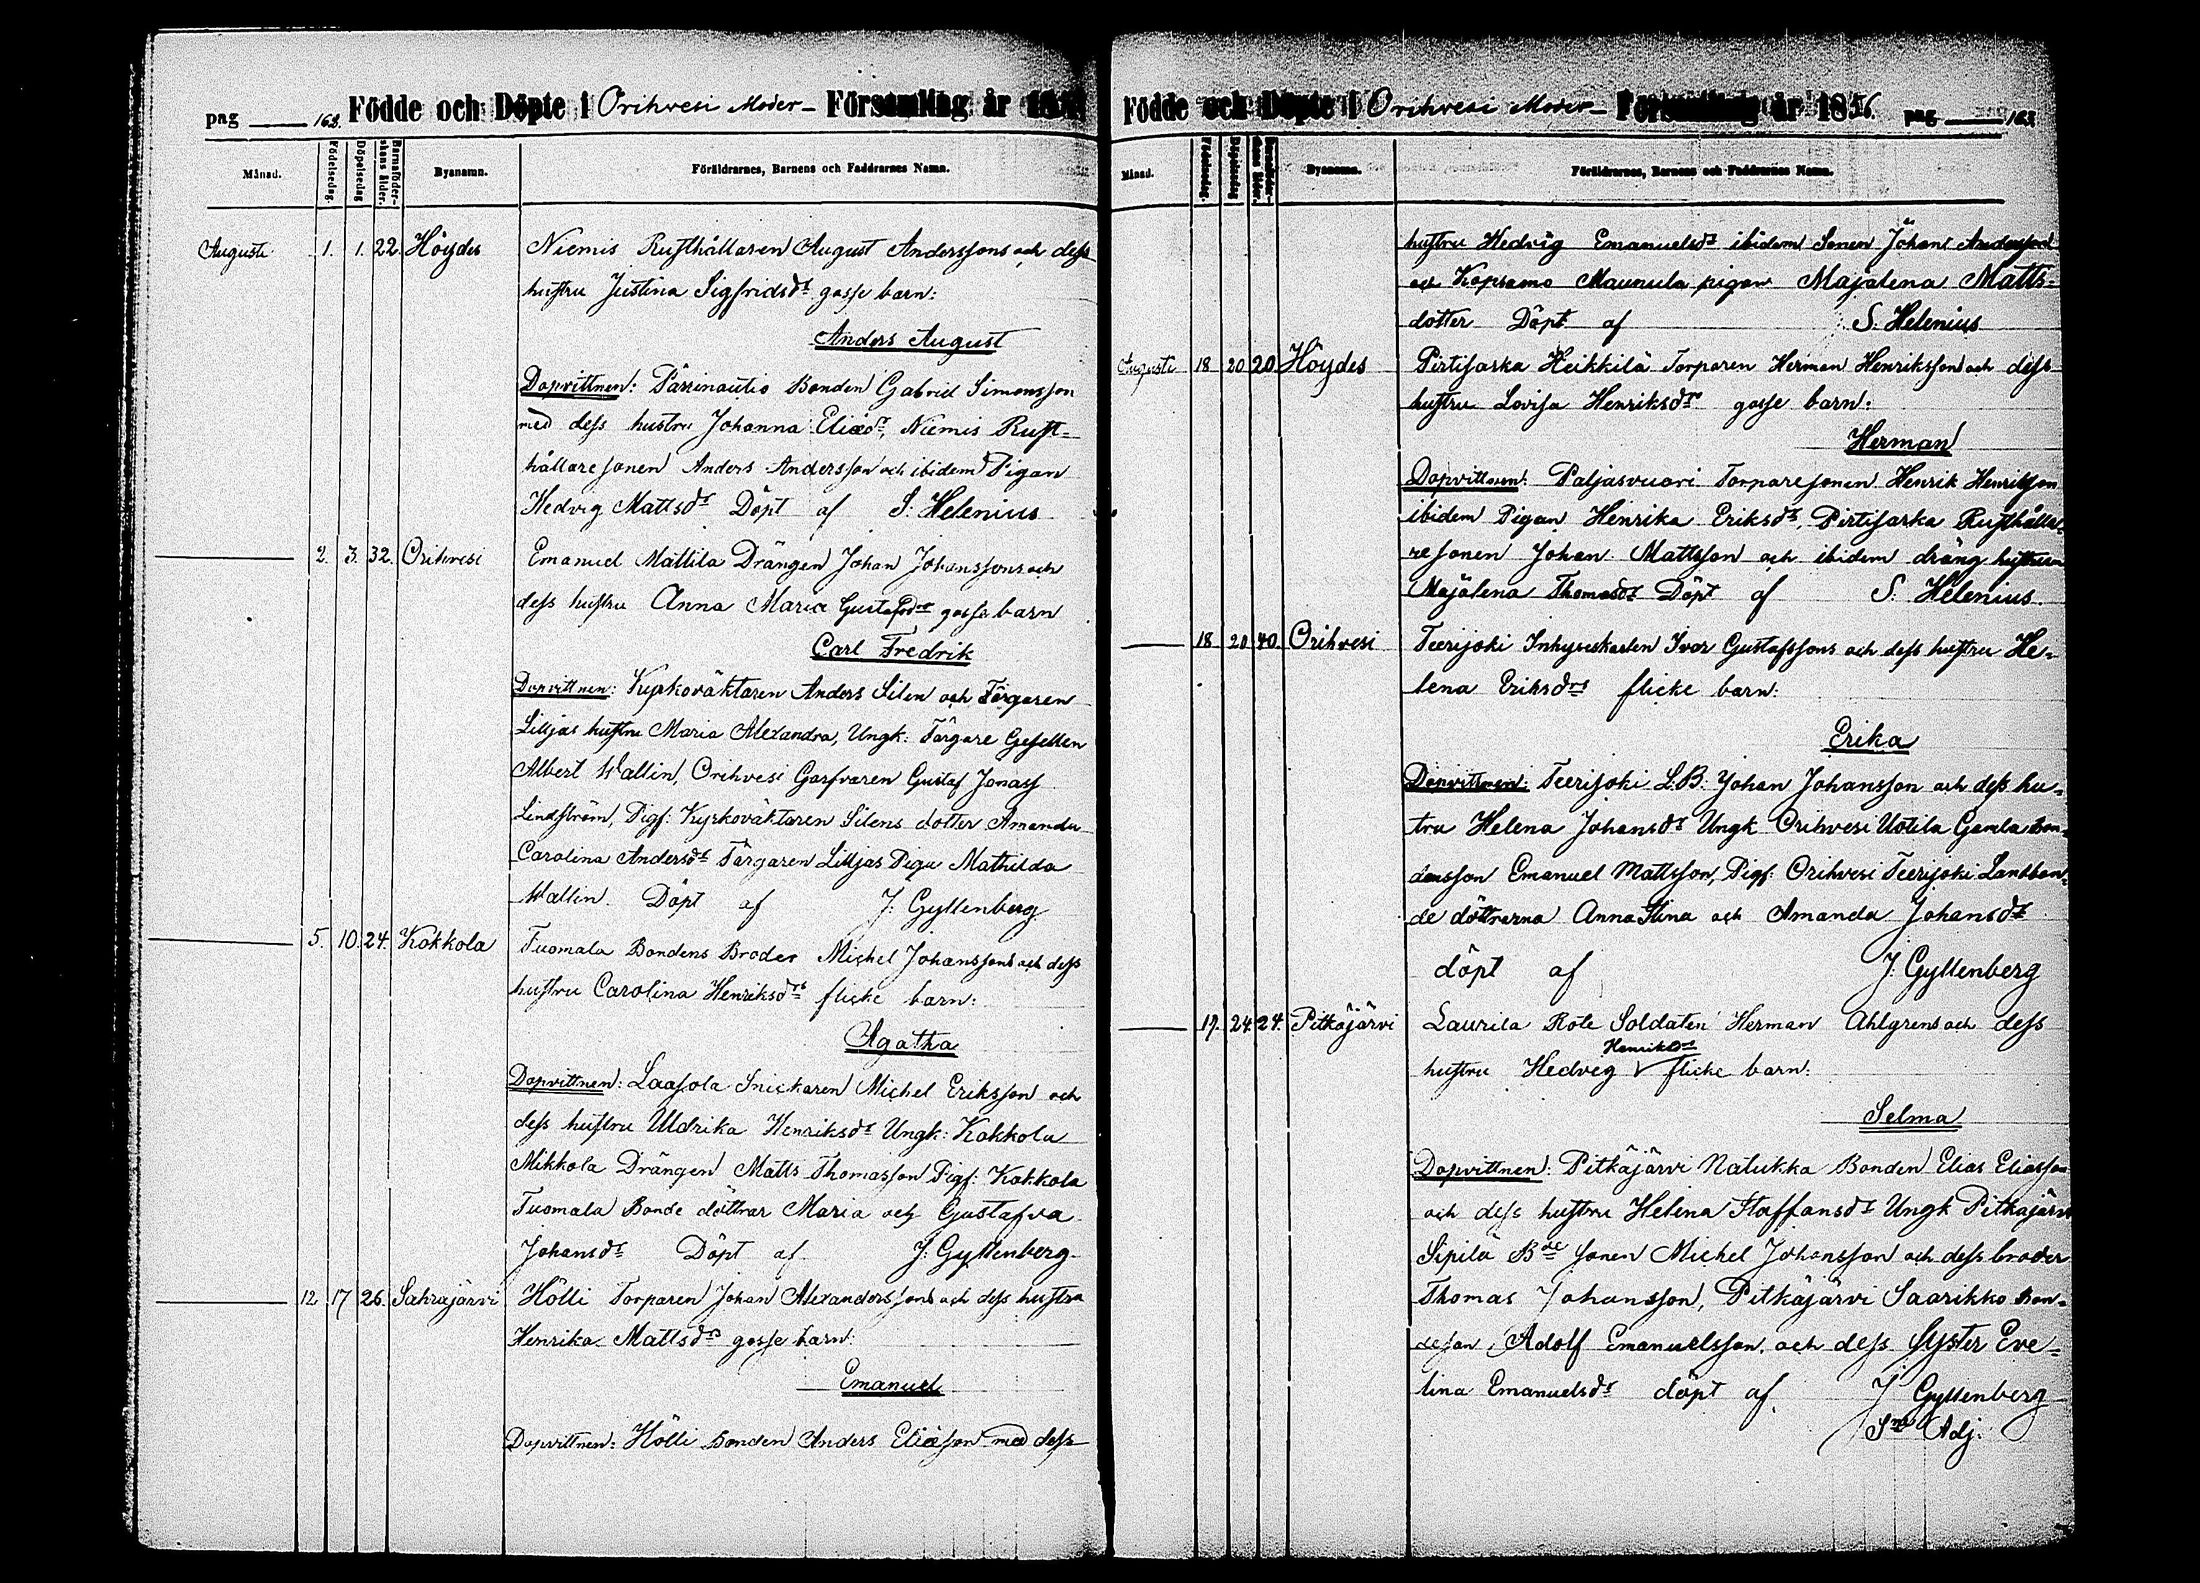 pag 163. Födde och Döpte i Orihvesi Moder- Församling år 18
Månad. Födelsedag. Döpelsedag Barnaföderskans ålder. Bynamn. Föräldrarnes, Barnens och Faddrarnes Namn.
Augusti 1. 1. 22. Höydes Niemis Rusthållaren August Anderssons och dess
hustru Justina Sigfridsdr gosse barn:
Anders August
Dopvittnen: Pässinautio Bonden Gabriel Simonsson
med dess hustru Johanna Eliædr, Niemis Rust=
hållaresonen Anders Andersson och ibidem Pigan
Hedvig Mattsdr Döpt af S. Helenius
2. 3. 32. Orihvesi Emanuel Mattila Drängen Johan Johanssons och
dess hustru Anna Maria Gustafsdr gosse barn
Carl Fredrik
Dopvittnen: Kyrkoväktaren Anders Silen och Färgaren
Liljas hustru Maria Alexandra, Ungk: Färgare Gesellen
Albert Wallin, Orihvesi Garfvaren Gustaf Jonass
Lindström, Pigf: Kyrkoväktaren Silens dotter Amanda
Carolina Andersdr Färgaren Lilljas Piga Mathilda
Wallin. Döpt af J: Gyllenberg
5. 10. 24. Kokkola Tuomala Bondens Broder Michel Johanssons och dess
hustru Carolina Henriksdr flicke barn:
Agatha
Dopvittnen: Laasola Snickaren Michel Eriksson och
dess hustru Uldrika Henriksdr Ungk: Kokkola
Mikkola Drängen Matts Thomasson Pigf: Kokkola
Tuomala Bonde döttrar Maria och Gustafva
Johansdr Döpt af J: Gyllenberg
12. 17. 26. Sahrajärvi Hölli Torparen Johan Alexanderssons och dess hustru
Henrika Mattsdr gosse barn:
Emanuel
Dopvittnen: Hölli Bonden Anders Eliæsson med dess
Födde och Döpte i Orihvesi Moder- Församling år 1856. pag 163
Månad. Födelsedag. Döpelsedag Barnaföderskans ålder. Bynamn. Föräldrarnes, Barnens och Faddrarnes Namn.
hustru Hedvig Emanuelsdr ibidem Sonen Johan Andersson
och Kopsamo Maunula pigan Majalena Matts=
dotter Döpt af S. Helenius
Augusti 18 20 20 Höydes Pirtisaska Heikkilä Torparen Herman Henrikssons och dess
hustru Lovisa Henriksdr gosse barn:
Herman
Dopvittnen: Paljasvuori Torparesonen Henrik Henriksson
ibidem Pigan Henrika Eriksdr, Pirtisaska Rusthålla=
resonen Johan Mattsson och ibidem dräng hustrun
Majalena Thomasdr Döpt af S. Helenius.
18 20 40. Orihvesi Teerijoki Inhyseskarlen Ivar Gustafssons och dess hustru He=
lena Eriksdr flicke barn:
Erika
Dopvittnen: Teerijoki L.B. Johan Johansson och dess hu=
tru Helena Johansdr Ungk Orihvesi Uotila Gamla Bon=
densson Emanuel Mattsson, Pigf: Orihvesi Teerijoki Landbon=
de döttrarna Anna Stina och Amanda Johansdr
döpt af J. Gyllenberg
19. 24. 24. Pitkäjärvi Laurila Rote Soldaten Herman Ahlgrens och dess
Henriksdr
hustru Hedvig flicke barn:
Selma
Dopvittnen: Pitkäjärvi Natukka Bonden Elias Eliasson
och dess hustru Helena Staffansdr Ungk Pitkäjärvi
Sipilä Bde sonen Michel Johansson och dess broder
Thomas Johansson, Pitkäjärvi Saarikko Bon=
deson Adolf Emanuelsson och dess Syster Eve=
lina Emanuelsdr döpt af J Gyllenberg
Sne Adj.